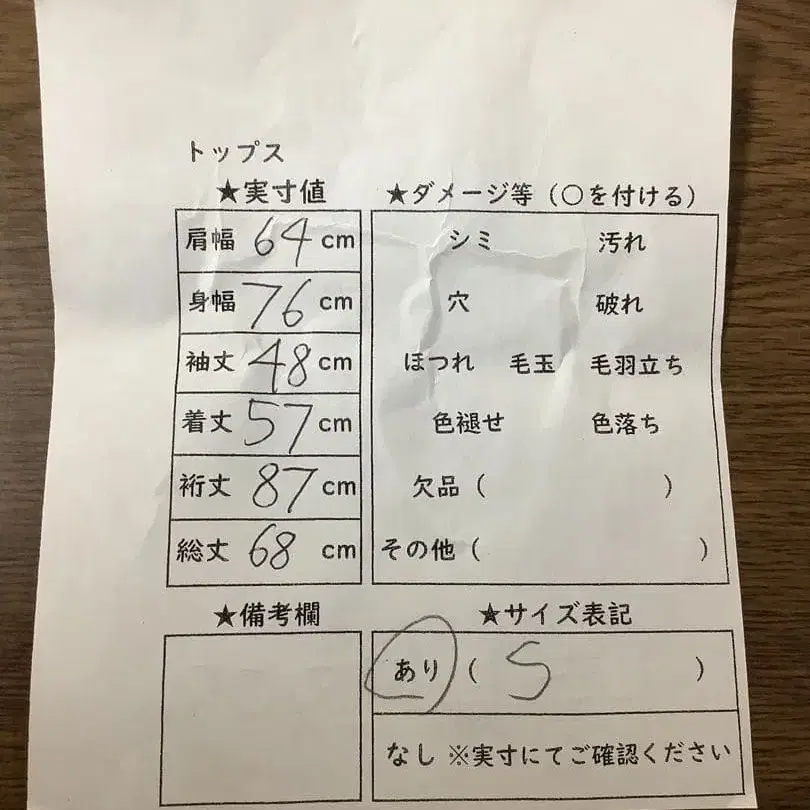 トップス
★実寸値
肩幅 64 cm
身幅 76 cm
袖丈 48 cm
着丈 57 cm
裄丈 87 cm
総丈 68 cm
★ダメージ等（〇を付ける）
シミ 汚れ
穴 破れ
ほつれ 毛玉 毛羽立ち
色褪せ 色落ち
欠品（ ）
その他（ ）
★備考欄
★サイズ表記
あり（ S ）
なし ※実寸にてご確認ください